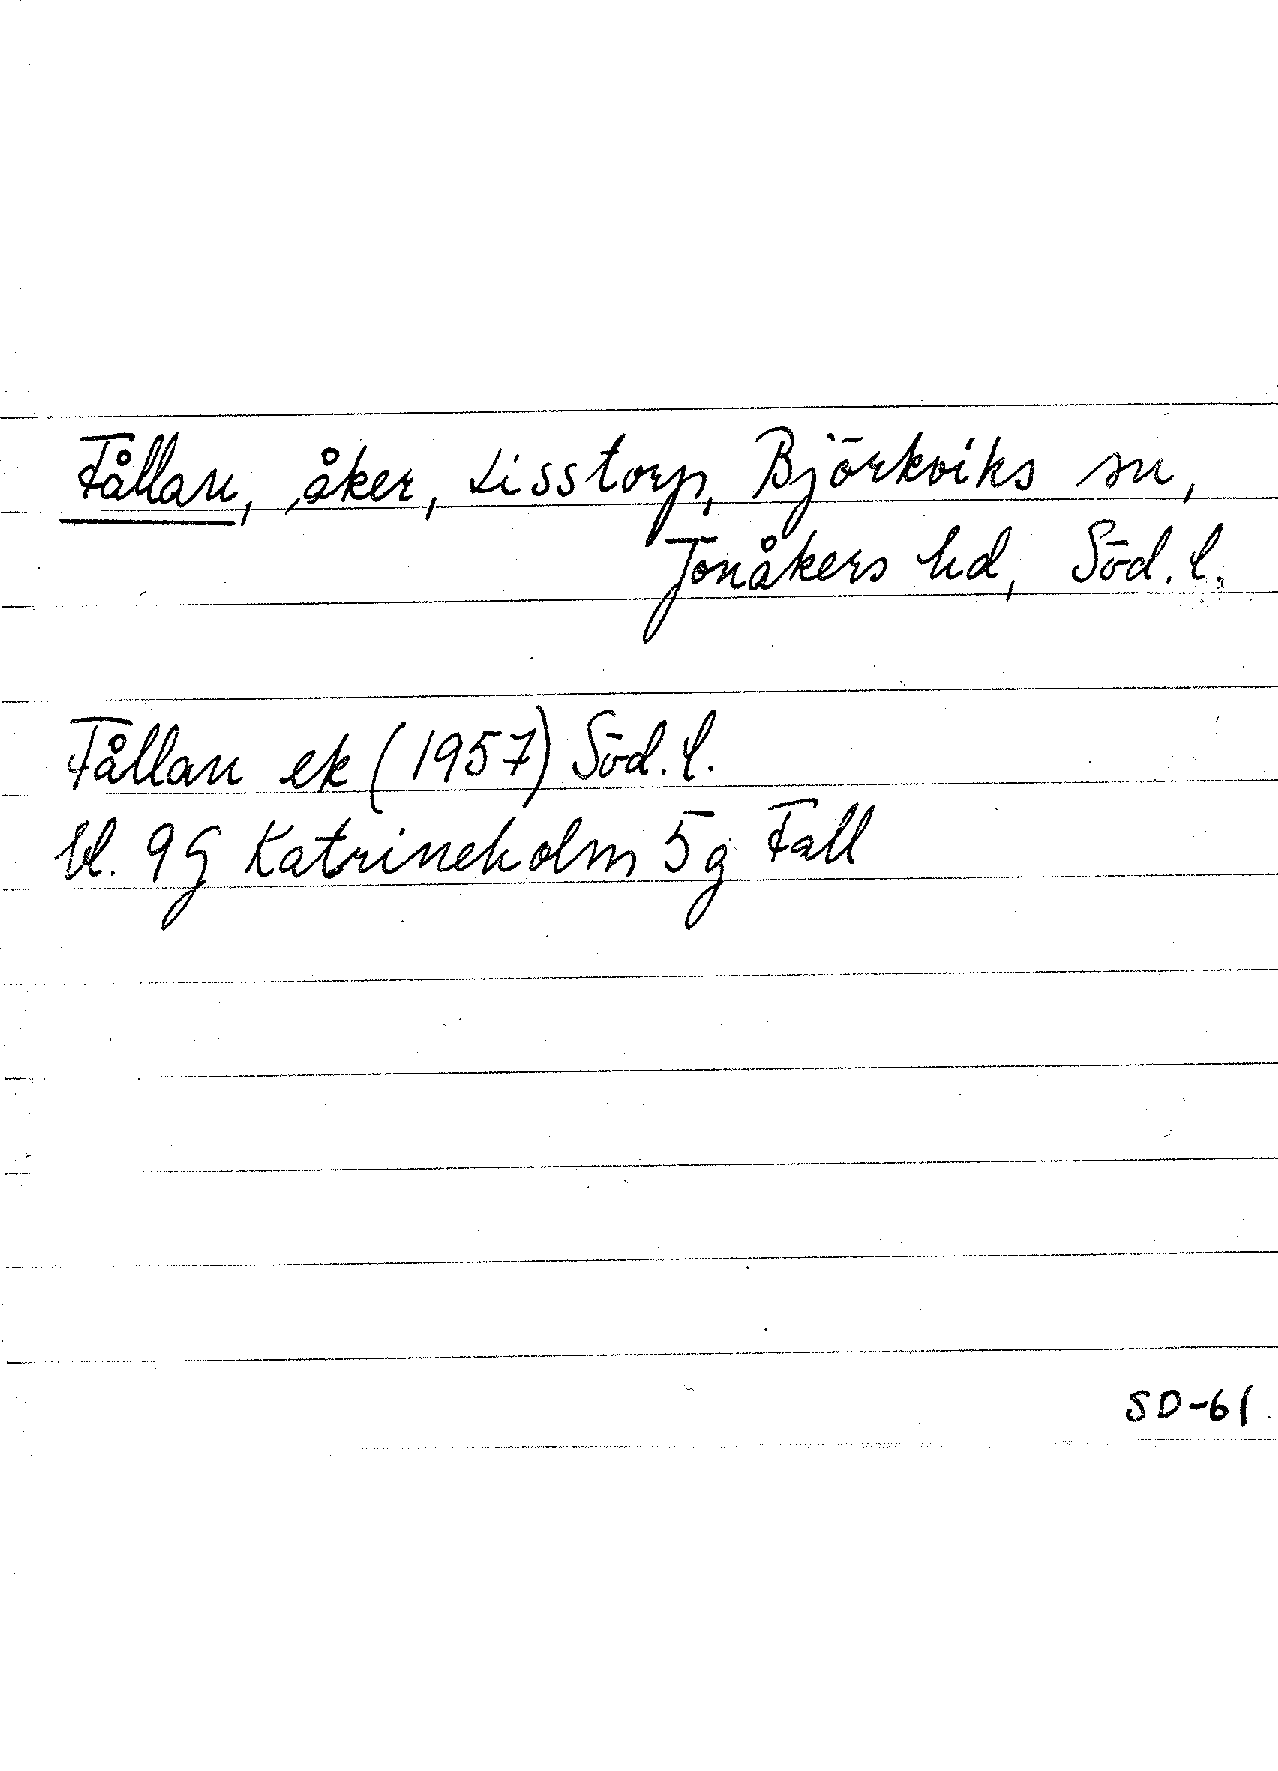 Fållan, åker, Lisstorp, Björkviks sn,
Jonåkers hd, Söd. l.
Fållan ek (1957) Söd. l.
bl. 9G Katrineholm 5g Fall
SD-61